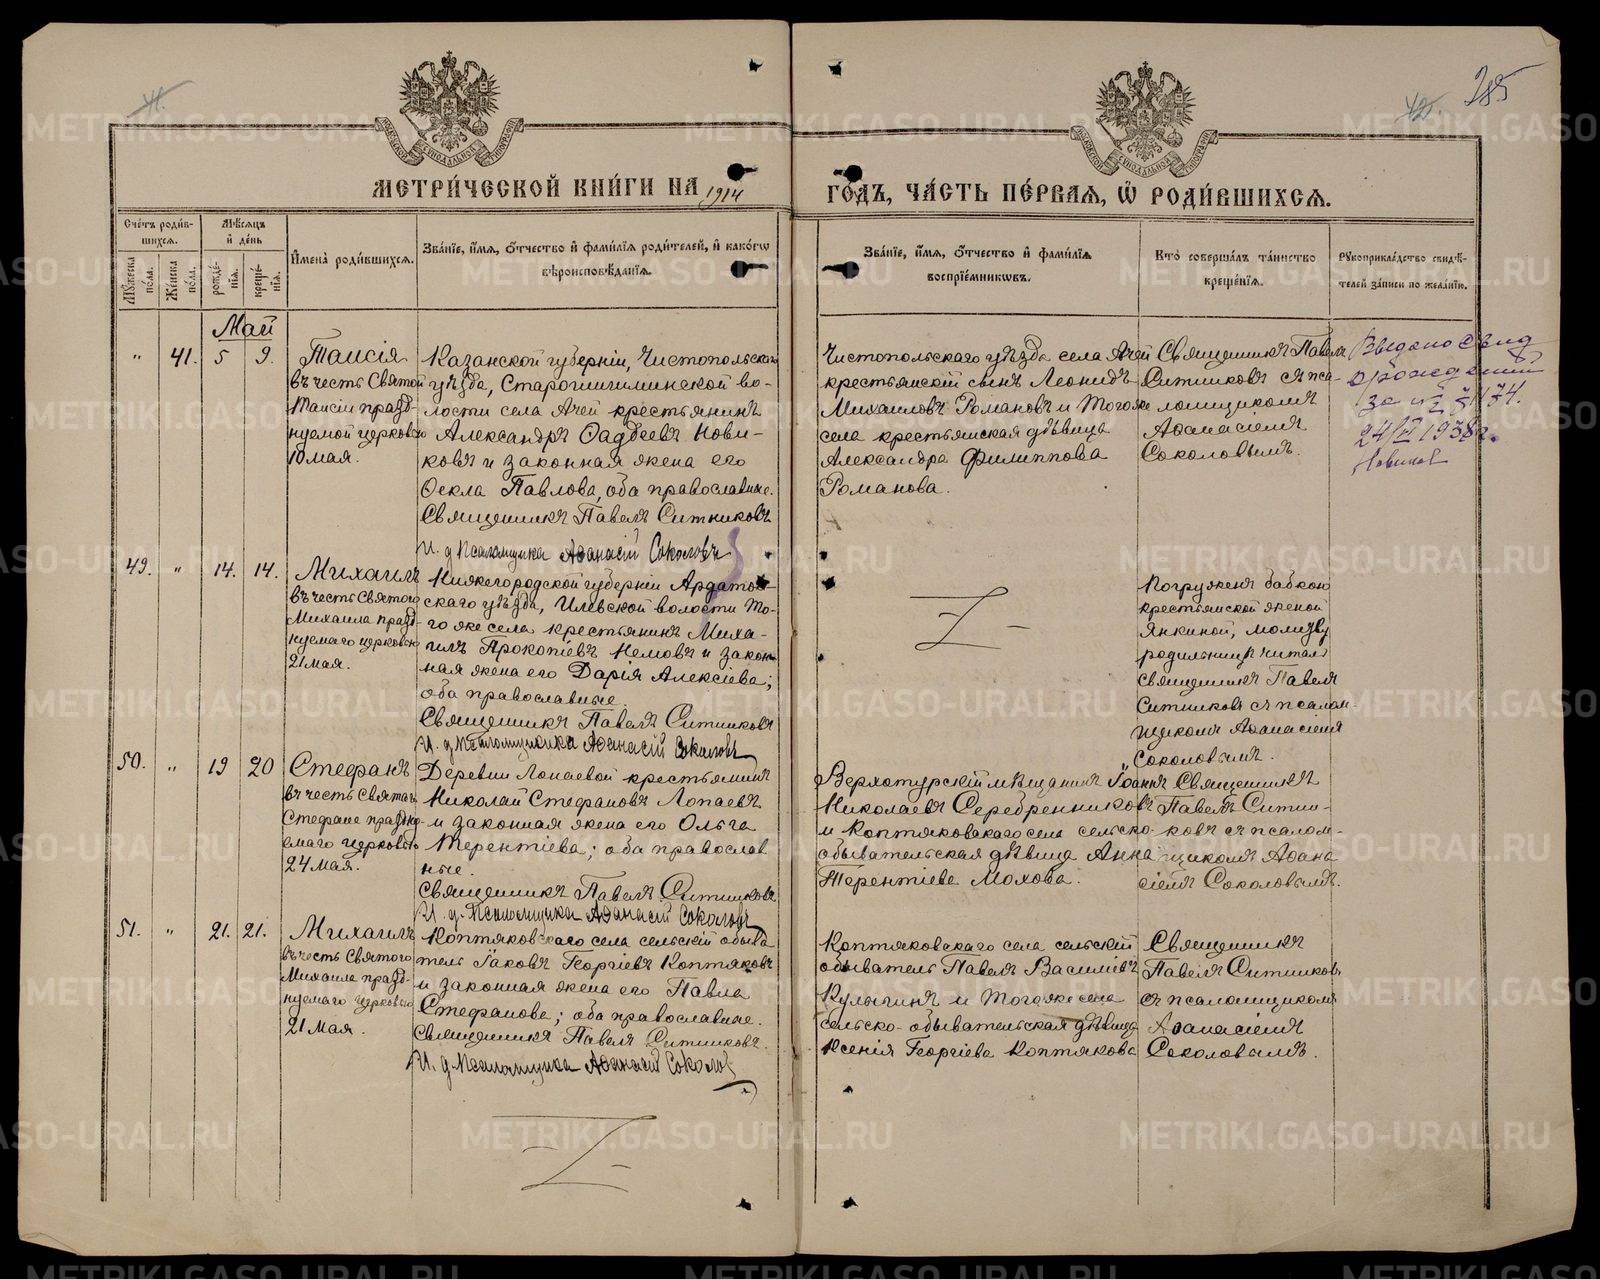 41.
42.
285
МЕТРИ́ЧЕСКОЙ КНИ́ГИ НА 1914
ГОДЪ, ЧА́СТЬ ПЕ́РВАЯ, Ѽ РОДИ́ВШИХСЯ.
Сче́тъ роди́в-
шихся.
Му́жеска по́ла.
Же́нска по́ла.
Мѣ́сяцъ
и҆ де́нь
рожде́-
нїя.
креще́-
нїя.
И҆мена̀ роди́вшихся.
Зва́нїе, и҆́мя, ѻ҆́тчество и҆ фами́лїя роди́телей, и҆ како́гѡ
вѣроисповѣ́данїя.
Зва́нїе, и҆́мя, ѻ҆́тчество и҆ фами́лїя
воспрїе́мниковъ.
Кто̀ соверша́лъ та́инство
креще́нїя.
Рꙋкоприкла́дство свидѣ́-
телей за́писи по жела́нїю.
Май
" 41. 5 9.
Таисія
въ честь Святой
Таисіи празд-
нуемой церковью
10 мая.
Казанской губерніи, Чистопольскаго
уѣзда, Старошишминской во-
лости села Ачей крестьянинъ
Александръ Ѳаддеевъ Нови-
ковъ и законная жена его
Ѳекла Павлова, оба православные.
Священникъ Павелъ Ситниковъ
И. д. Псаломщика Аѳанасій Соколовъ
Чистопольскаго уѣзда села Ачей
крестьянскій сынъ Леонидъ
Михаиловъ Романовъ и тогоже
села крестьянская дѣвица
Александра Филиппова
Романова.
Священникъ Павелъ
Ситниковъ съ пса-
ломщикомъ
Аѳанасіемъ
Соколовымъ.
Выдано свид
о рождении
за №
24/VI 1938 г.
49. " 14. 14.
Михаилъ
въ честь Святого
Михаила празд-
нуемаго церковью
21 мая.
Нижегородской губерніи Ардатов-
скаго уѣзда, Илевской волости то-
го же села крестьянинъ Миха-
илъ Прокопіевъ Немовъ и закон-
ная жена его Дарія Алексіева;
оба православные.
Священникъ Павелъ Ситниковъ
И. д. Псаломщика Аѳанасій Соколовъ
Погруженъ бабкою
крестьянской женой
Янкиной, молитву
родильницѣ читалъ
священникъ Павелъ
Ситниковъ съ псалом-
щикомъ Аѳанасіемъ
Соколовымъ.
50. " 19 20
Стефанъ
въ честь Святаго
Стефана праздну-
емаго церковью
24 мая.
Деревни Лопаевой крестьянинъ
Николай Стефановъ Лопаевъ
и законная жена его Ольга
Терентіева; оба православ
ные.
Священникъ Павелъ Ситниковъ
И. д. Псаломщика Аѳанасій Соколовъ
Верхотурскій мѣщанинъ Іоаннъ
Николаевъ Серебренниковъ
и Коптяковскаго села сельско-
обывательская дѣвица Анна
Терентіева Мохова.
Священникъ
Павелъ Ситни-
ковъ съ псалом-
щикомъ Аѳана
сіемъ Соколовымъ.
51. " 21. 21.
Михаилъ
въ честь Святого
Михаила празд-
нуемаго церковью
21 Мая.
Коптяковскаго села сельскій обыва
тель Іаковъ Георгіевъ Коптяковъ
и законная жена его Павла
Стефанова; оба православные.
Священникъ Павелъ Ситниковъ.
И. д. Псаломщика Аѳанасій Соколовъ
Коптяковскаго села сельскій
обыватель Павелъ Василіевъ
Кулыгинъ и тогоже села
сельско-обывательская дѣвица
Ксенія Георгіева Коптякова
Священникъ
Павелъ Ситниковъ
съ псаломщикомъ
Аѳанасіемъ
Соколовымъ.
METRIKI.GASO-URAL.RU